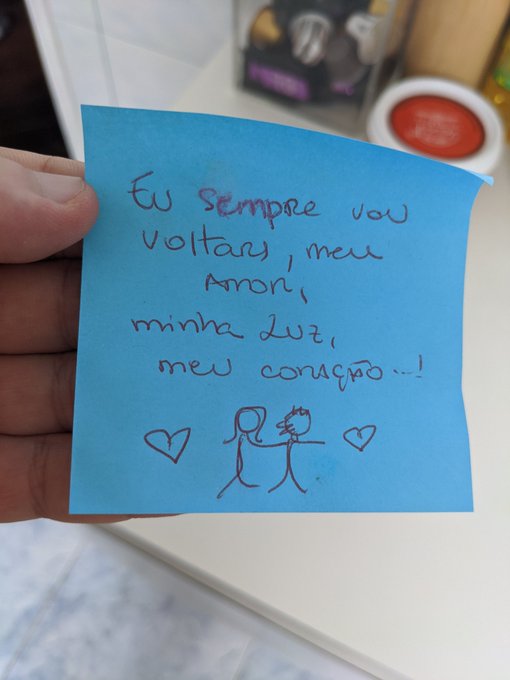 Eu sempre vou
voltar, meu
Amor,
minha Luz,
meu coração...!